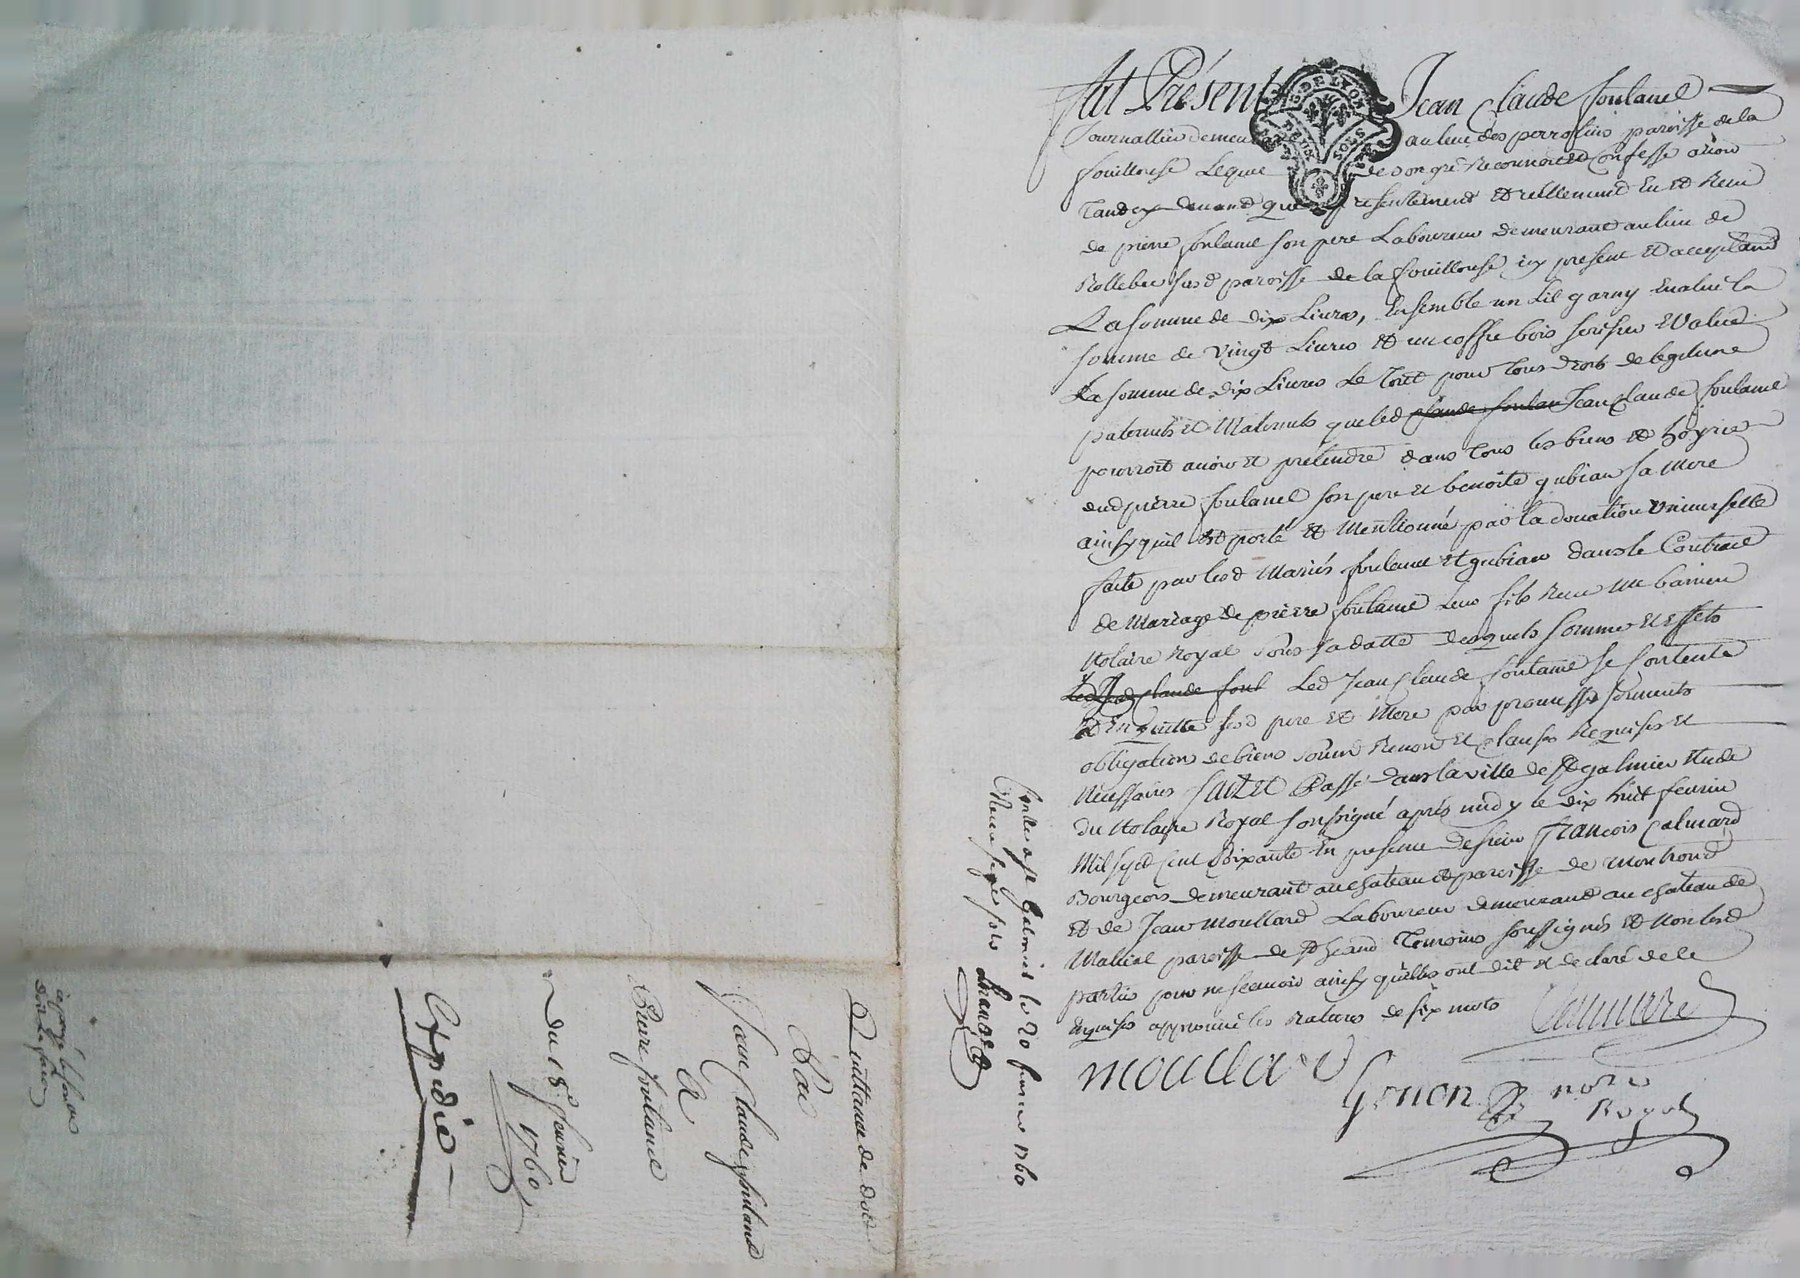 fut Présent Jean Claude fontanel
Journallier demeur au lieu des perrotins paroisse de la
fouillouse Lequel de son gré Reconnoit et Confesse avoir
cy devant que presentement et réellement Eu et Receu
de pierre fontanel son pere Laboureur demeurant au lieu de
susd paroisse de la fouillouse icy présent et acceptant
La somme de dix Livres, Ensemble un Lit garny Evalué la
somme de vingt Livres et un coffre bois serisier Evalué
La somme de dix Livres Le tout pour tous droits de legitime
paternels et Maternels que led claude fontan Jean Claude fontanel
pourroit avoir et prétendre dans tous les biens et hoyrie
dud pierre fontanel son pere et benoite gubian sa Mere
ainsy quil est porté et Mentionné par la donation universelle
faite par lesd Mariés fontanel et gubian dans le Contract
de Mariage de pierre fontanel Leur fils Receu Me
Notaire Royal sous sa datte desquels somme et effets
Led Claude font Led Jean Claude fontanel se Contente
et En quitte sesd pere et Mere par promesses serments
obligation de biens soum Renon et Clauses Requises et
Necessaires fait et Passé dans la ville de St galmier Etude
du Notaire Royal soussigné après midy le dix huit fevrier
Mil sept cent soixante En presence de sieur françois Calmard
Bourgeois demeurant au chateau et paroisse de Montrond
et de Jean Moullard Laboureur demeurant au chateau de
paroisse de St Temoins soussignés et Non lesd
parties pour ne scavoir ainsy quelles ont dit et declaré de ce
Enquises approuvé les Ratures de six mots
moullard
Gonon nore
Royal
Controllé a St Galmier le 20 fevrier 1760
Receu sols
Quittance de dote
Par
Jean Claude fontanel
A
Pierre fontanel
du 18e fevrier
1760
Expedié